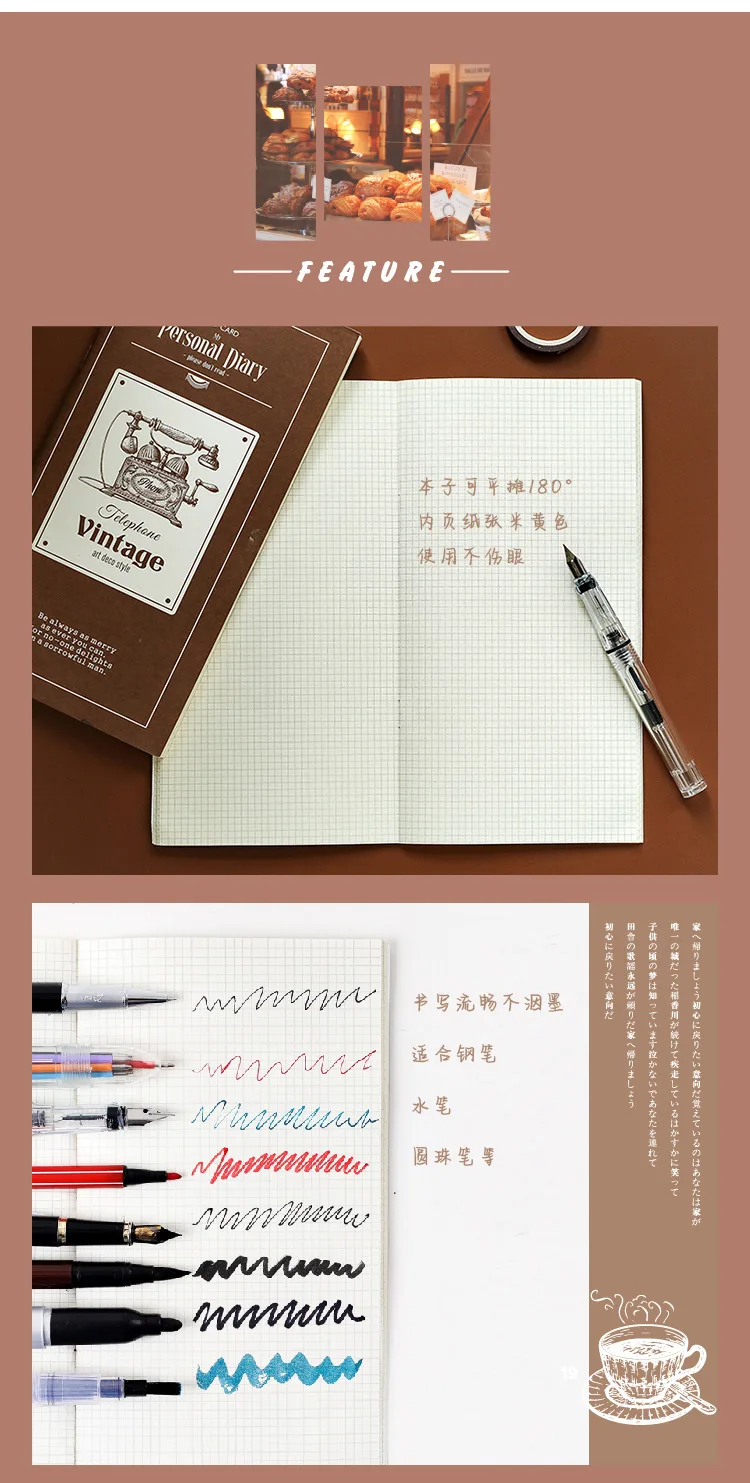 FEATURE
CARD
My
Personal Diary
- please don't read -
Phone
Telephone
Vintage
art deco style
Be always as merry
as ever you can,
for no-one delights
in a sorrowful man.
本子可平摊180°
内页纸张米黄色
使用不伤眼
书写流畅不洇墨
适合钢笔
水笔
圆珠笔等
家へ帰りましょう初心に戻りたい意向だ覚えているのはあなたは家が
唯一の城だった稲香川が続けて疾走しているはかすかに笑って
子供の頃の夢は知っています泣かないであなたを連れて
田舎の歌謡永遠が頼りだ家へ帰りましょう
初心に戻りたい意向だ
19